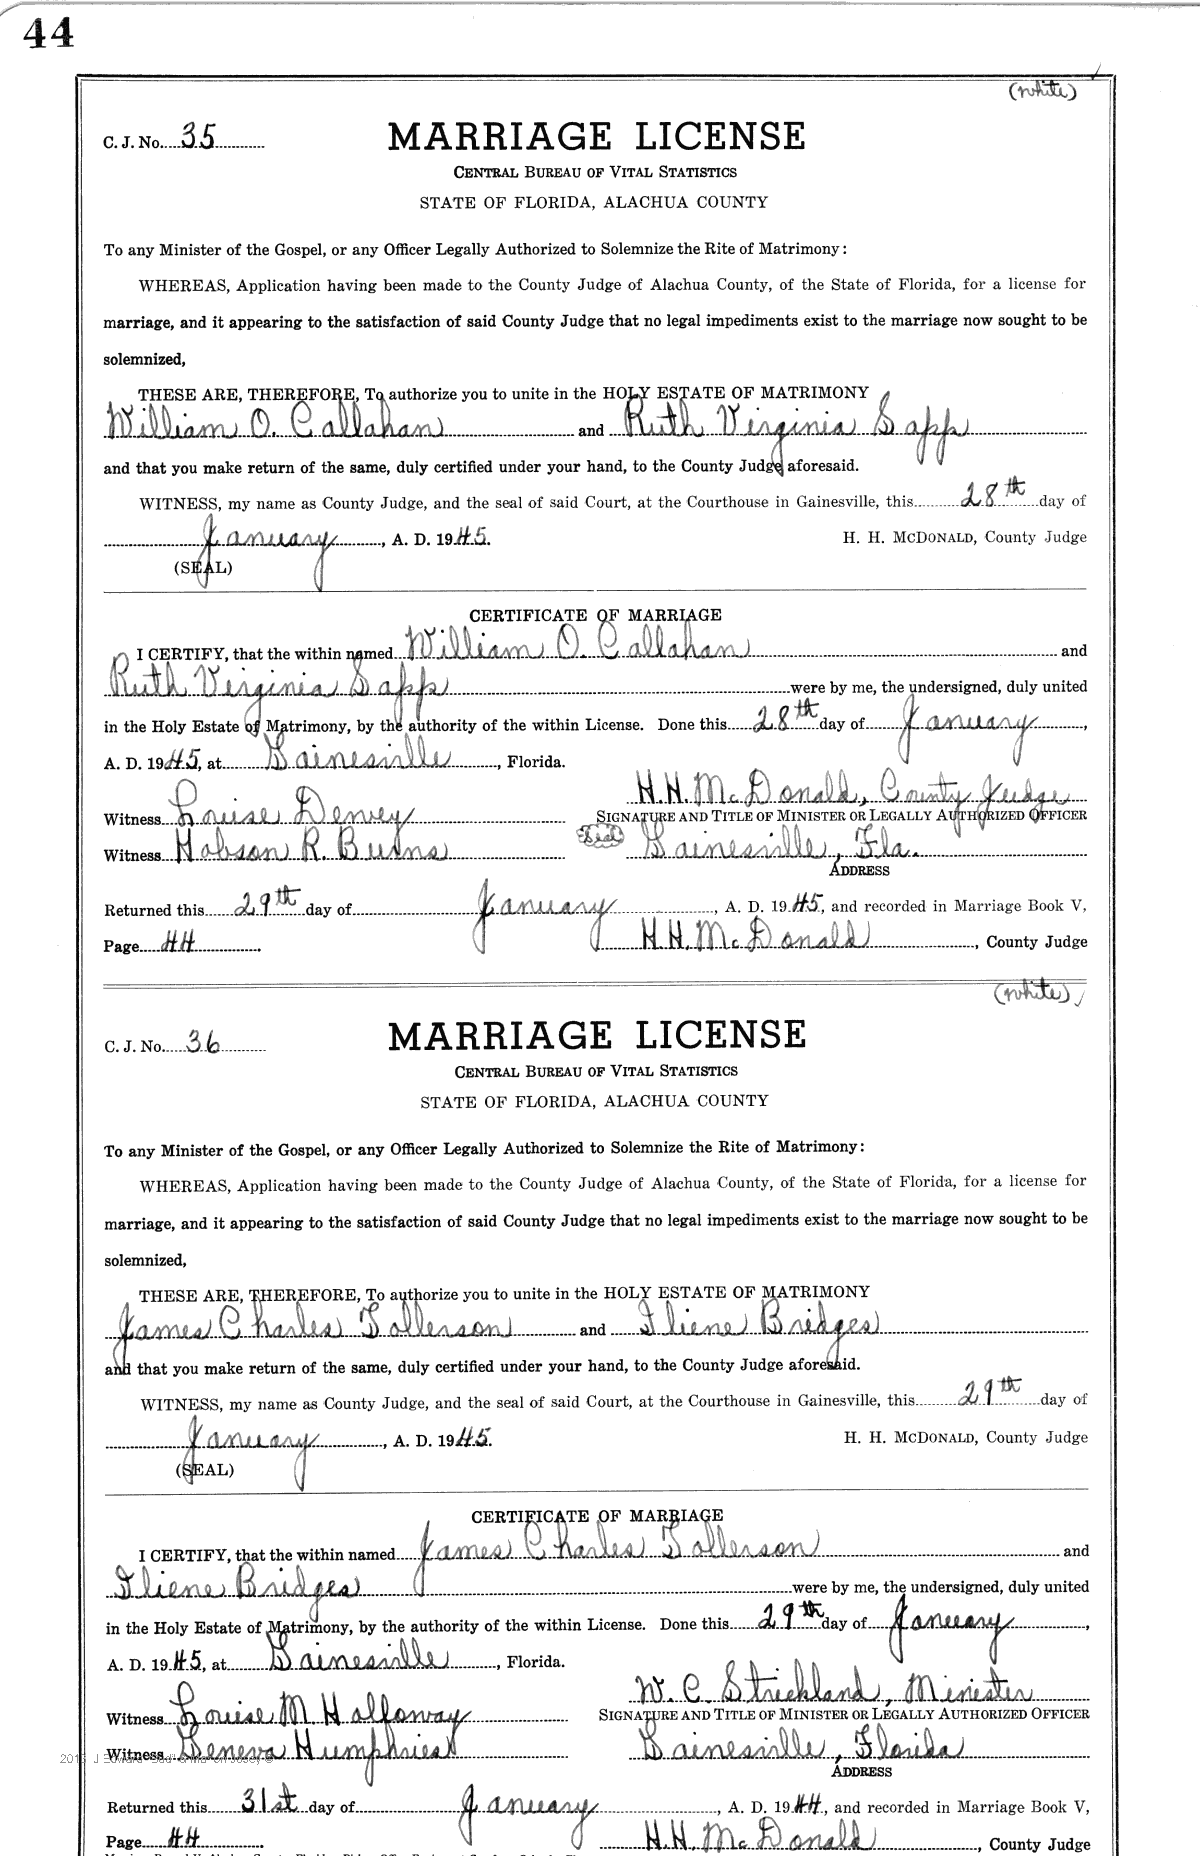 44
(white)
C. J. No. 35
MARRIAGE LICENSE
CENTRAL BUREAU OF VITAL STATISTICS
STATE OF FLORIDA, ALACHUA COUNTY
To any Minister of the Gospel, or any Officer Legally Authorized to Solemnize the Rite of Matrimony:
WHEREAS, Application having been made to the County Judge of Alachua County, of the State of Florida, for a license for
marriage, and it appearing to the satisfaction of said County Judge that no legal impediments exist to the marriage now sought to be
solemnized,
THESE ARE, THEREFORE, To authorize you to unite in the HOLY ESTATE OF MATRIMONY
William O. Callahan and Ruth Virginia Sapp
and that you make return of the same, duly certified under your hand, to the County Judge aforesaid.
WITNESS, my name as County Judge, and the seal of said Court, at the Courthouse in Gainesville, this 28th day of
January, A. D. 1945. H. H. MCDONALD, County Judge
(SEAL)
CERTIFICATE OF MARRIAGE
I CERTIFY, that the within named William O. Callahan and
Ruth Virginia Sapp were by me, the undersigned, duly united
in the Holy Estate of Matrimony, by the authority of the within License. Done this 28th day of January,
A. D. 1945, at Gainesville, Florida.
H.H. McDonald, County Judge
Witness Louise Dewey SIGNATURE AND TITLE OF MINISTER OR LEGALLY AUTHORIZED OFFICER
Witness Hobson R. Burns (Seal) Gainesville, Fla.
ADDRESS
Returned this 29th day of January, A. D. 1945, and recorded in Marriage Book V,
Page 44 H.H. McDonald, County Judge
(white)
C. J. No. 36
MARRIAGE LICENSE
CENTRAL BUREAU OF VITAL STATISTICS
STATE OF FLORIDA, ALACHUA COUNTY
To any Minister of the Gospel, or any Officer Legally Authorized to Solemnize the Rite of Matrimony:
WHEREAS, Application having been made to the County Judge of Alachua County, of the State of Florida, for a license for
marriage, and it appearing to the satisfaction of said County Judge that no legal impediments exist to the marriage now sought to be
solemnized,
THESE ARE, THEREFORE, To authorize you to unite in the HOLY ESTATE OF MATRIMONY
James Charles Tollerson and Iliene Bridges
and that you make return of the same, duly certified under your hand, to the County Judge aforesaid.
WITNESS, my name as County Judge, and the seal of said Court, at the Courthouse in Gainesville, this 29th day of
January, A. D. 1945. H. H. MCDONALD, County Judge
(SEAL)
CERTIFICATE OF MARRIAGE
I CERTIFY, that the within named James Charles Tollerson and
Iliene Bridges were by me, the undersigned, duly united
in the Holy Estate of Matrimony, by the authority of the within License. Done this 29th day of January,
A. D. 1945, at Gainesville, Florida.
W. C. Strickland, Minister
Witness Louise M Holloway SIGNATURE AND TITLE OF MINISTER OR LEGALLY AUTHORIZED OFFICER
Witness Geneva Humphries Gainesville, Florida
ADDRESS
Returned this 31st day of January, A. D. 1944, and recorded in Marriage Book V,
Page 44 H.H. McDonald, County Judge